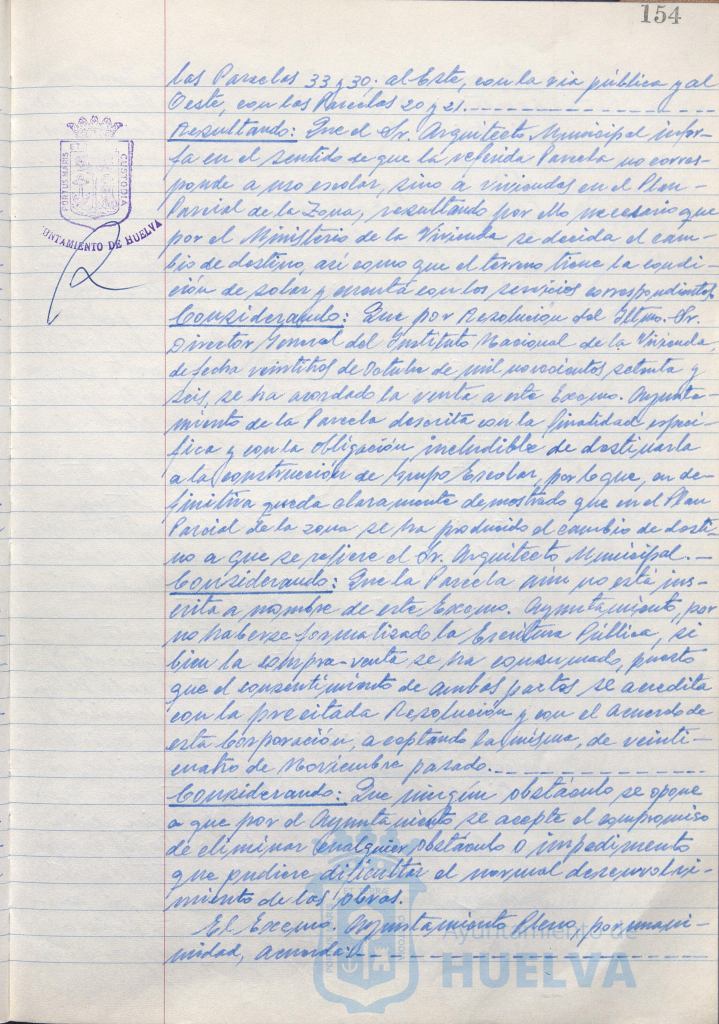 154
las Parcelas 33 y 30; al Este, con la via pública y al
Oeste, con las Parcelas 20 y 21.
Resultando: Que el Sr. Arquitecto Municipal infor-
ma en el sentido de que la referida Parcela no corres-
ponde a uso escolar, sino a viviendas en el Plan
Parcial de la Zona, resultando por ello necesario que
por el Ministerio de la Vivienda se decida el cam-
bio de destino, así como que el terreno tiene la condi-
ción de solar y cuenta con los servicios correspondientes.
Considerando: Que por Resolución del Iltmo. Sr.
Director General del Instituto Nacional de la Vivienda,
de fecha veintitres de Octubre de mil novecientos setenta y
seis, se ha acordado la venta a este Excmo. Ayunta-
miento de la Parcela descrita con la finalidad especí-
fica y con la obligación ineludible de destinarla
a la construcción de Grupo Escolar, por lo que, en de-
finitiva queda claramente demostrado que en el Plan
Parcial de la zona se ha producido el cambio de desti-
no a que se refiere el Sr. Arquitecto Municipal.
Considerando: Que la Parcela aún no está ins-
crita a nombre de este Excmo. Ayuntamiento, por
no haberse formalizado la Escritura Pública, si
bien la compra-venta se ha consumado, puesto
que el consentimiento de ambas partes se acredita
con la precitada Resolución y con el acuerdo de
esta Corporación, aceptando la misma, de veinti-
cuatro de Noviembre pasado.
Considerando: Que ningún obstáculo se opone
a que por el Ayuntamiento se acepte el compromiso
de eliminar cualquier obstáculo o impedimento
que pudiere dificultar el normal desenvolvi-
miento de las obras.
El Excmo. Ayuntamiento Pleno, por unani-
midad, acuerda:
PORTUS MARIS ET
CUSTODIA
UNTAMIENTO DE HUELVA
Ayuntamiento de
HUELVA